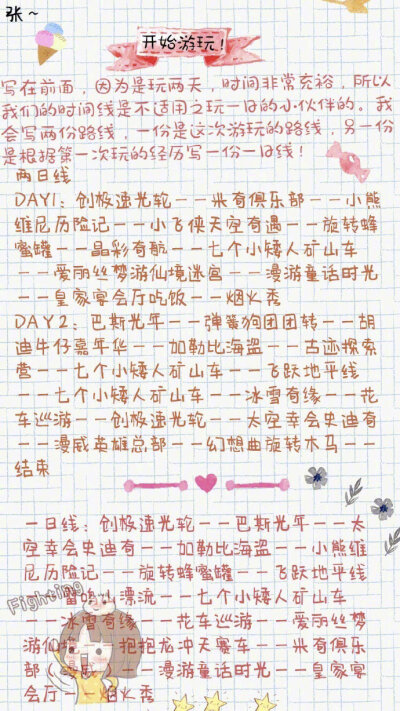 张～
开始游玩！
写在前面，因为是玩两天，时间非常充裕，所以
我们的时间线是不适用之玩一日的小伙伴的。我
会写两份路线，一份是这次游玩的路线，另一份
是根据第一次玩的经历写一份一日线！
两日线
DAY1：创极速光轮——米奇俱乐部——小熊
维尼历险记——小飞侠天空奇遇——旋转蜂
蜜罐——晶彩奇航——七个小矮人矿山车
——爱丽丝梦游仙境迷宫——漫游童话时光
——皇家宴会厅吃饭——烟火秀
DAY2：巴斯光年——弹簧狗团团转——胡
迪牛仔嘉年华——加勒比海盗——古迹探索
营——七个小矮人矿山车——飞跃地平线
——七个小矮人矿山车——冰雪奇缘——花
车巡游——创极速光轮——太空幸会史迪奇
——漫威英雄总部——幻想曲旋转木马——
结束
一日线：创极速光轮——巴斯光年——太
空幸会史迪奇——加勒比海盗——小熊维
尼历险记——旋转蜂蜜罐——飞跃地平线
雷鸣山漂流——七个小矮人矿山车
Fighting
——冰雪奇缘——花车巡游——爱丽丝梦
游仙境 抱抱龙冲天赛车——米奇俱乐
部 ——漫游童话时光——皇家宴
会厅——烟火秀